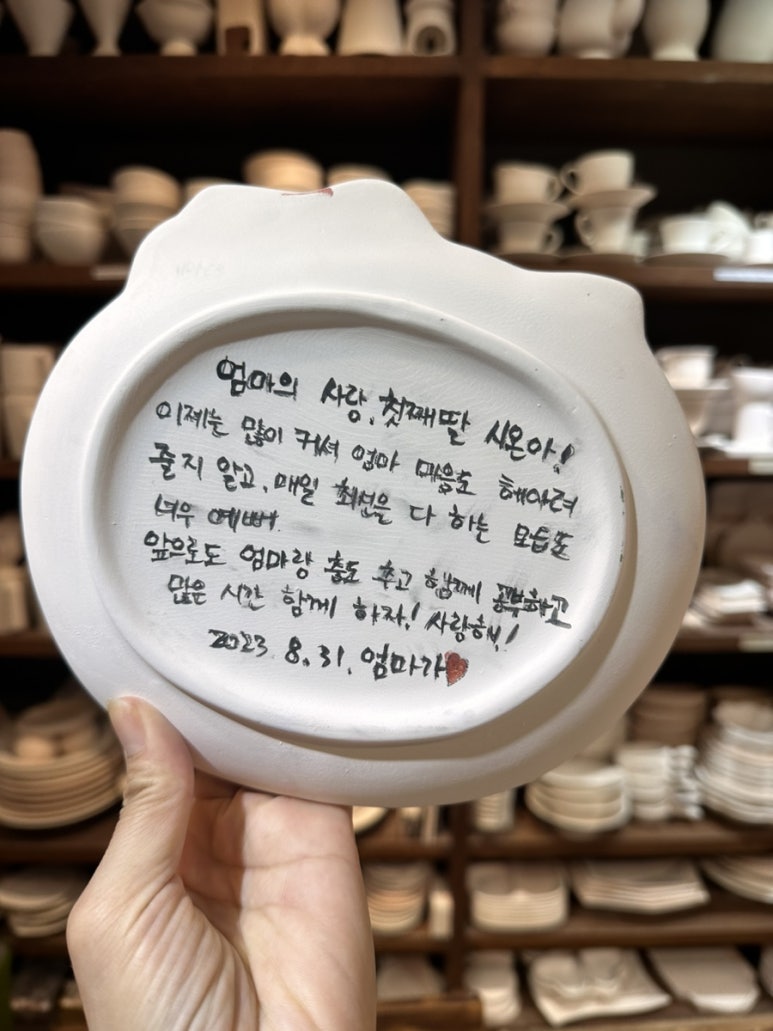 엄마의 사랑, 첫째딸 시온아!
이제는 많이 커셔 엄마 마음도 헤아려
줄지 알고, 매일 최선을 다 하는 모습도
너무 예뻐.
앞으로도 엄마랑 춤도 추고 함께 공부하고
많은 시간 함께 하자! 사랑해!
2023. 8. 31. 엄마가